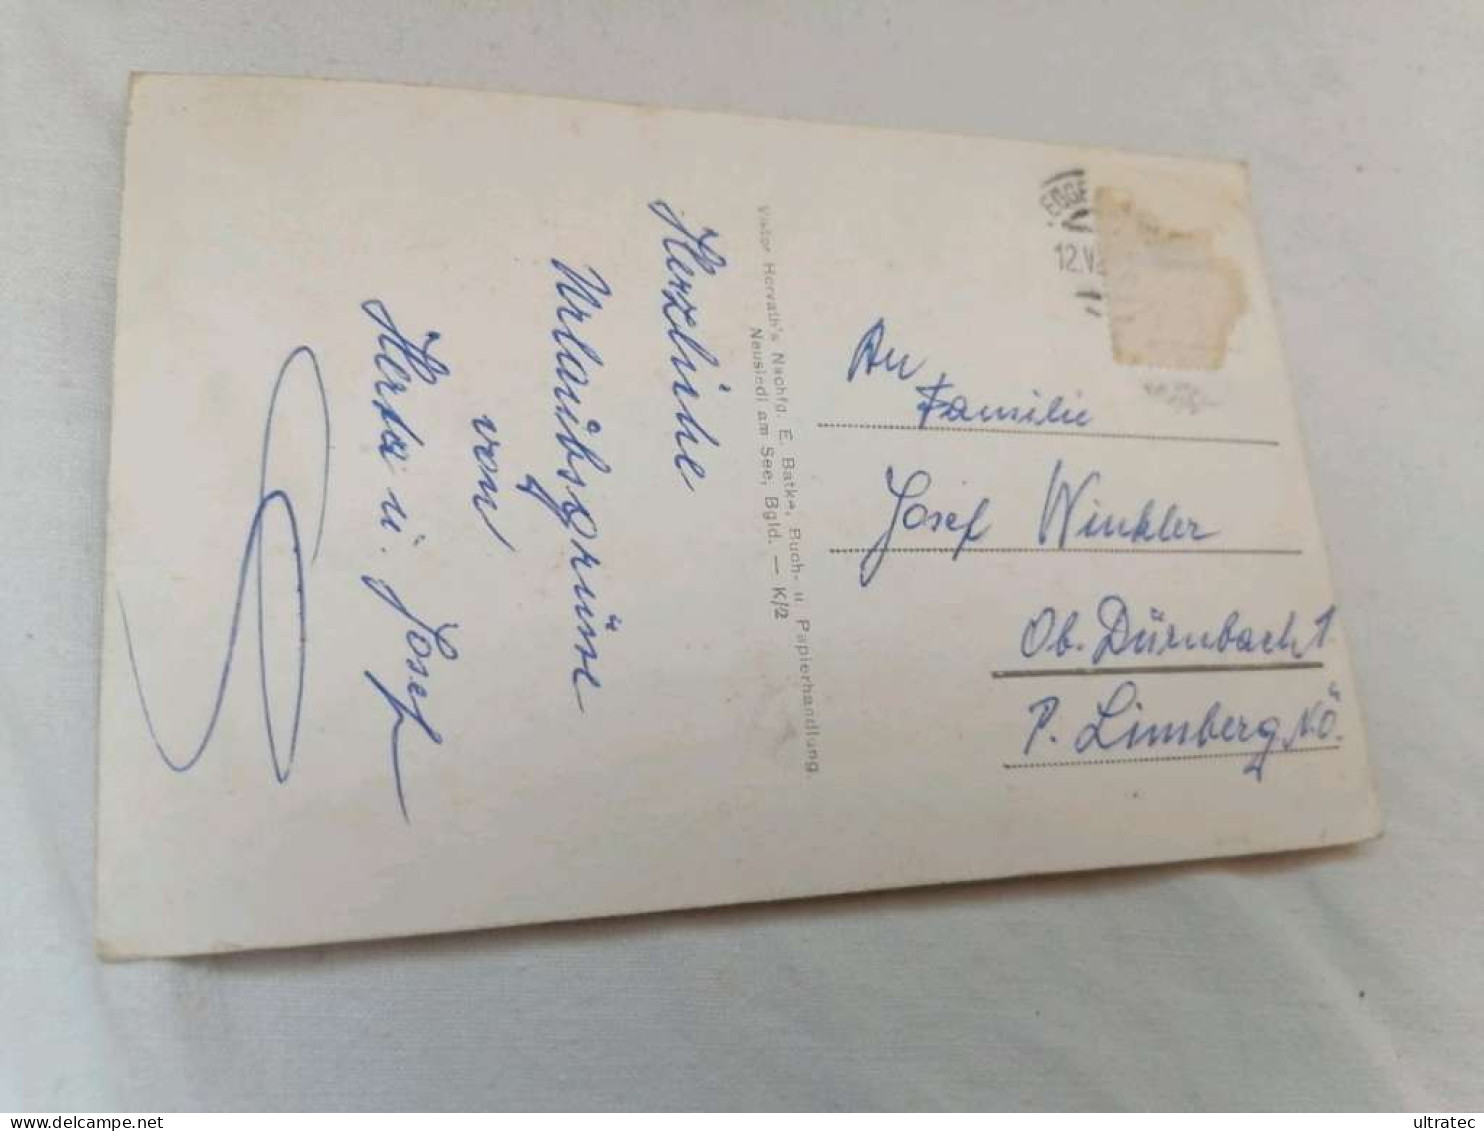 Herzliche
Urlaubsgrüsse
von
Herta u. Josef
Viktor Horvath's Nachfg. E. Batke, Buch- u. Papierhandlung.
Neusiedl am See, Bgld. — K/2
12.V
An
Familie
Josef Winkler
Ob. Dürnbach 1
P. Limberg, N.Ö.
delcampe.net
ultratec